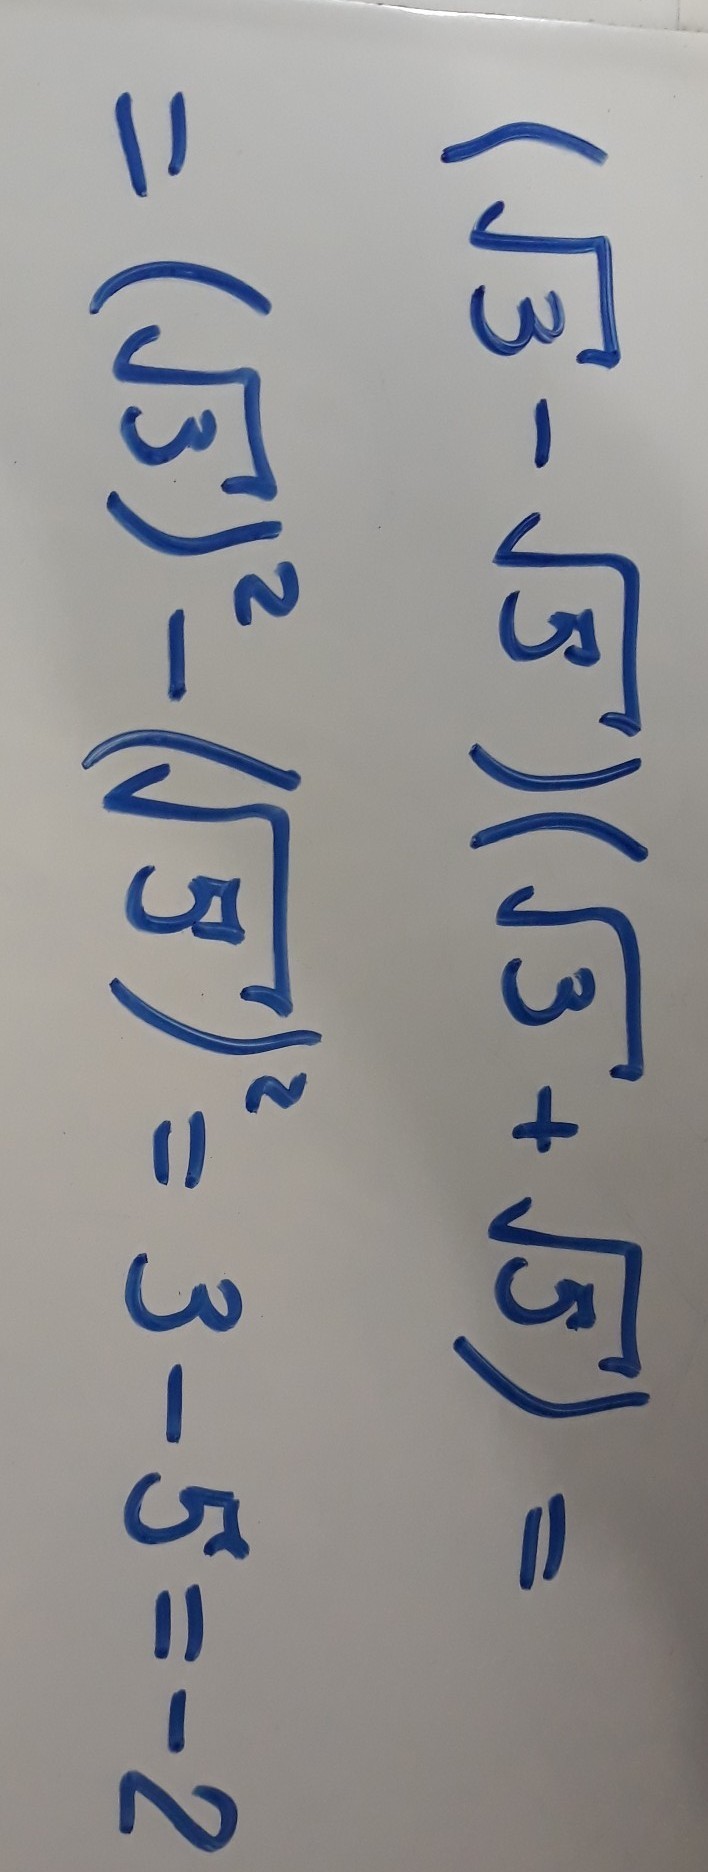 (√3 - √5)(√3 + √5) =
= (√3)² - (√5)² = 3 - 5 = -2